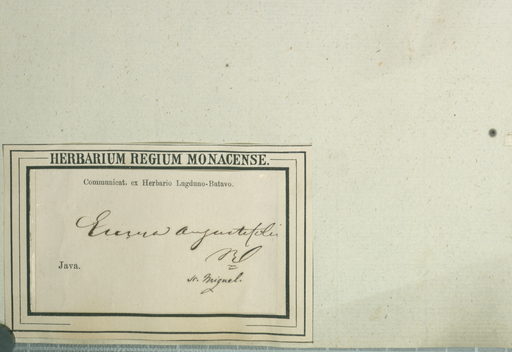 HERBARIUM REGIUM MONACENSE.
Communicat. ex Herbario Lugduno-Batavo.
Eurya angustifolia
Bl
Java.
Miquel.